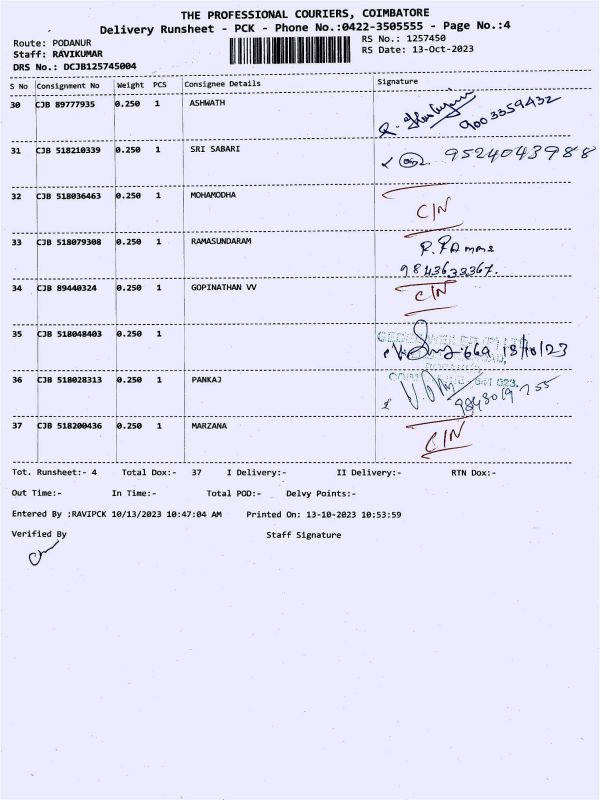 THE PROFESSIONAL COURIERS, COIMBATORE
Delivery Runsheet - PCK - Phone No.:0422-3505555 - Page No.:4
Route: PODANUR RS No.: 1257450
Staff: RAVIKUMAR RS Date: 13-Oct-2023
DRS No.: DCJB125745004
S No Consignment No Weight PCS Consignee Details Signature
30 CJB 89777935 0.250 1 ASHWATH
9003359432
31 CJB 518210339 0.250 1 SRI SABARI 9524043988
32 CJB 518036463 0.250 1 MOHAMODHA
C/N
33 CJB 518079308 0.250 1 RAMASUNDARAM
9843633367.
34 CJB 89440324 0.250 1 GOPINATHAN VV C/N
35 CJB 518048403 0.250 1
36 CJB 518028313 0.250 1 PANKAJ
37 CJB 518200436 0.250 1 MARZANA C/N
Tot. Runsheet:- 4 Total Dox:- 37 I Delivery:- II Delivery:- RTN Dox:-
Out Time:- In Time:- Total POD:- Delvy Points:-
Entered By :RAVIPCK 10/13/2023 10:47:04 AM Printed On: 13-10-2023 10:53:59
Verified By Staff Signature